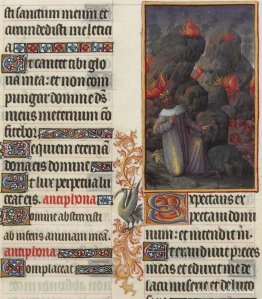 sti saccum meum et
circumdedisti me leticia
Ut cantet tibi glo
ria mea: et non com
pungar domine de
us meus in eternum con
fitebor:
Requiem eternam
dona eis domine
Et lux perpetua lu
ceat eis. antiphona
Domine abstraxisti
ab inferis animam meam.
antiphona
Complaceat
Expectans ex
pectavi domi
num: et intendit m
Et exaudivit preces
meas et eduxit me de
lacu miserie et de luto